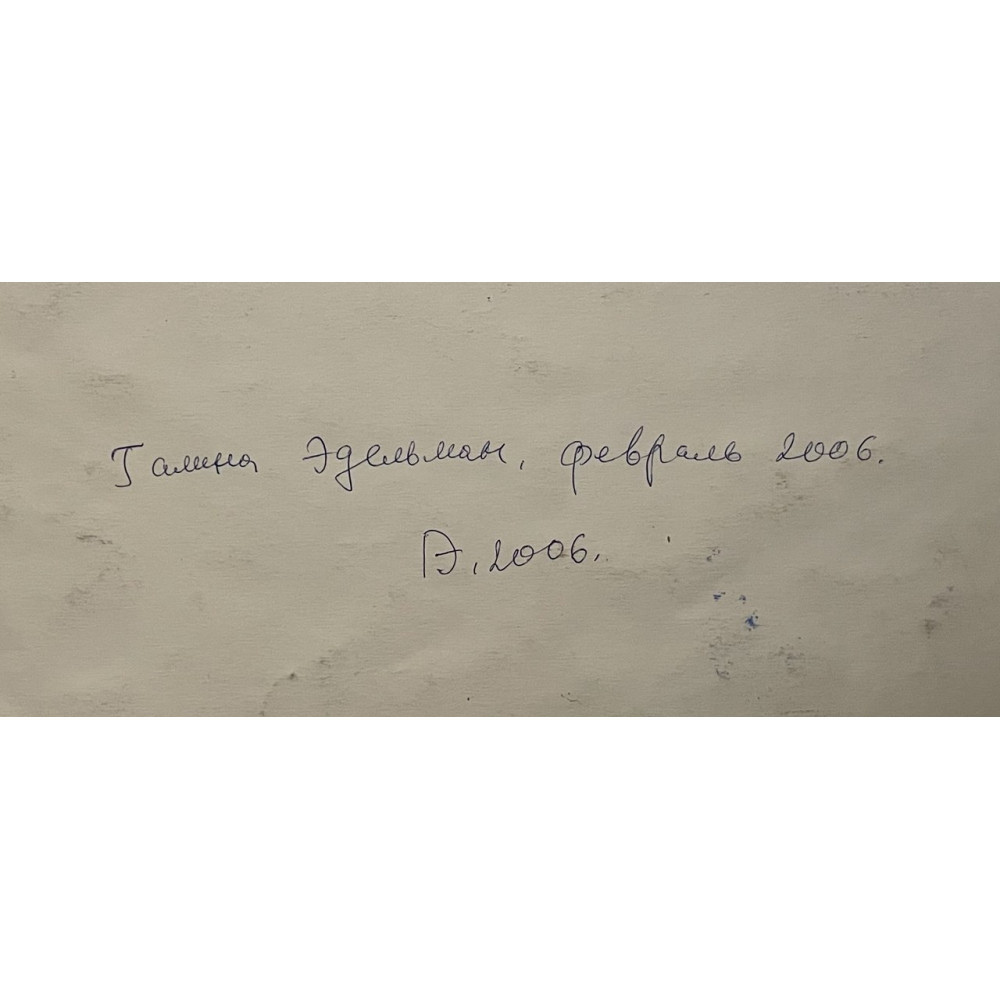 Галина Эдельман, февраль 2006.
ГЭ, 2006.